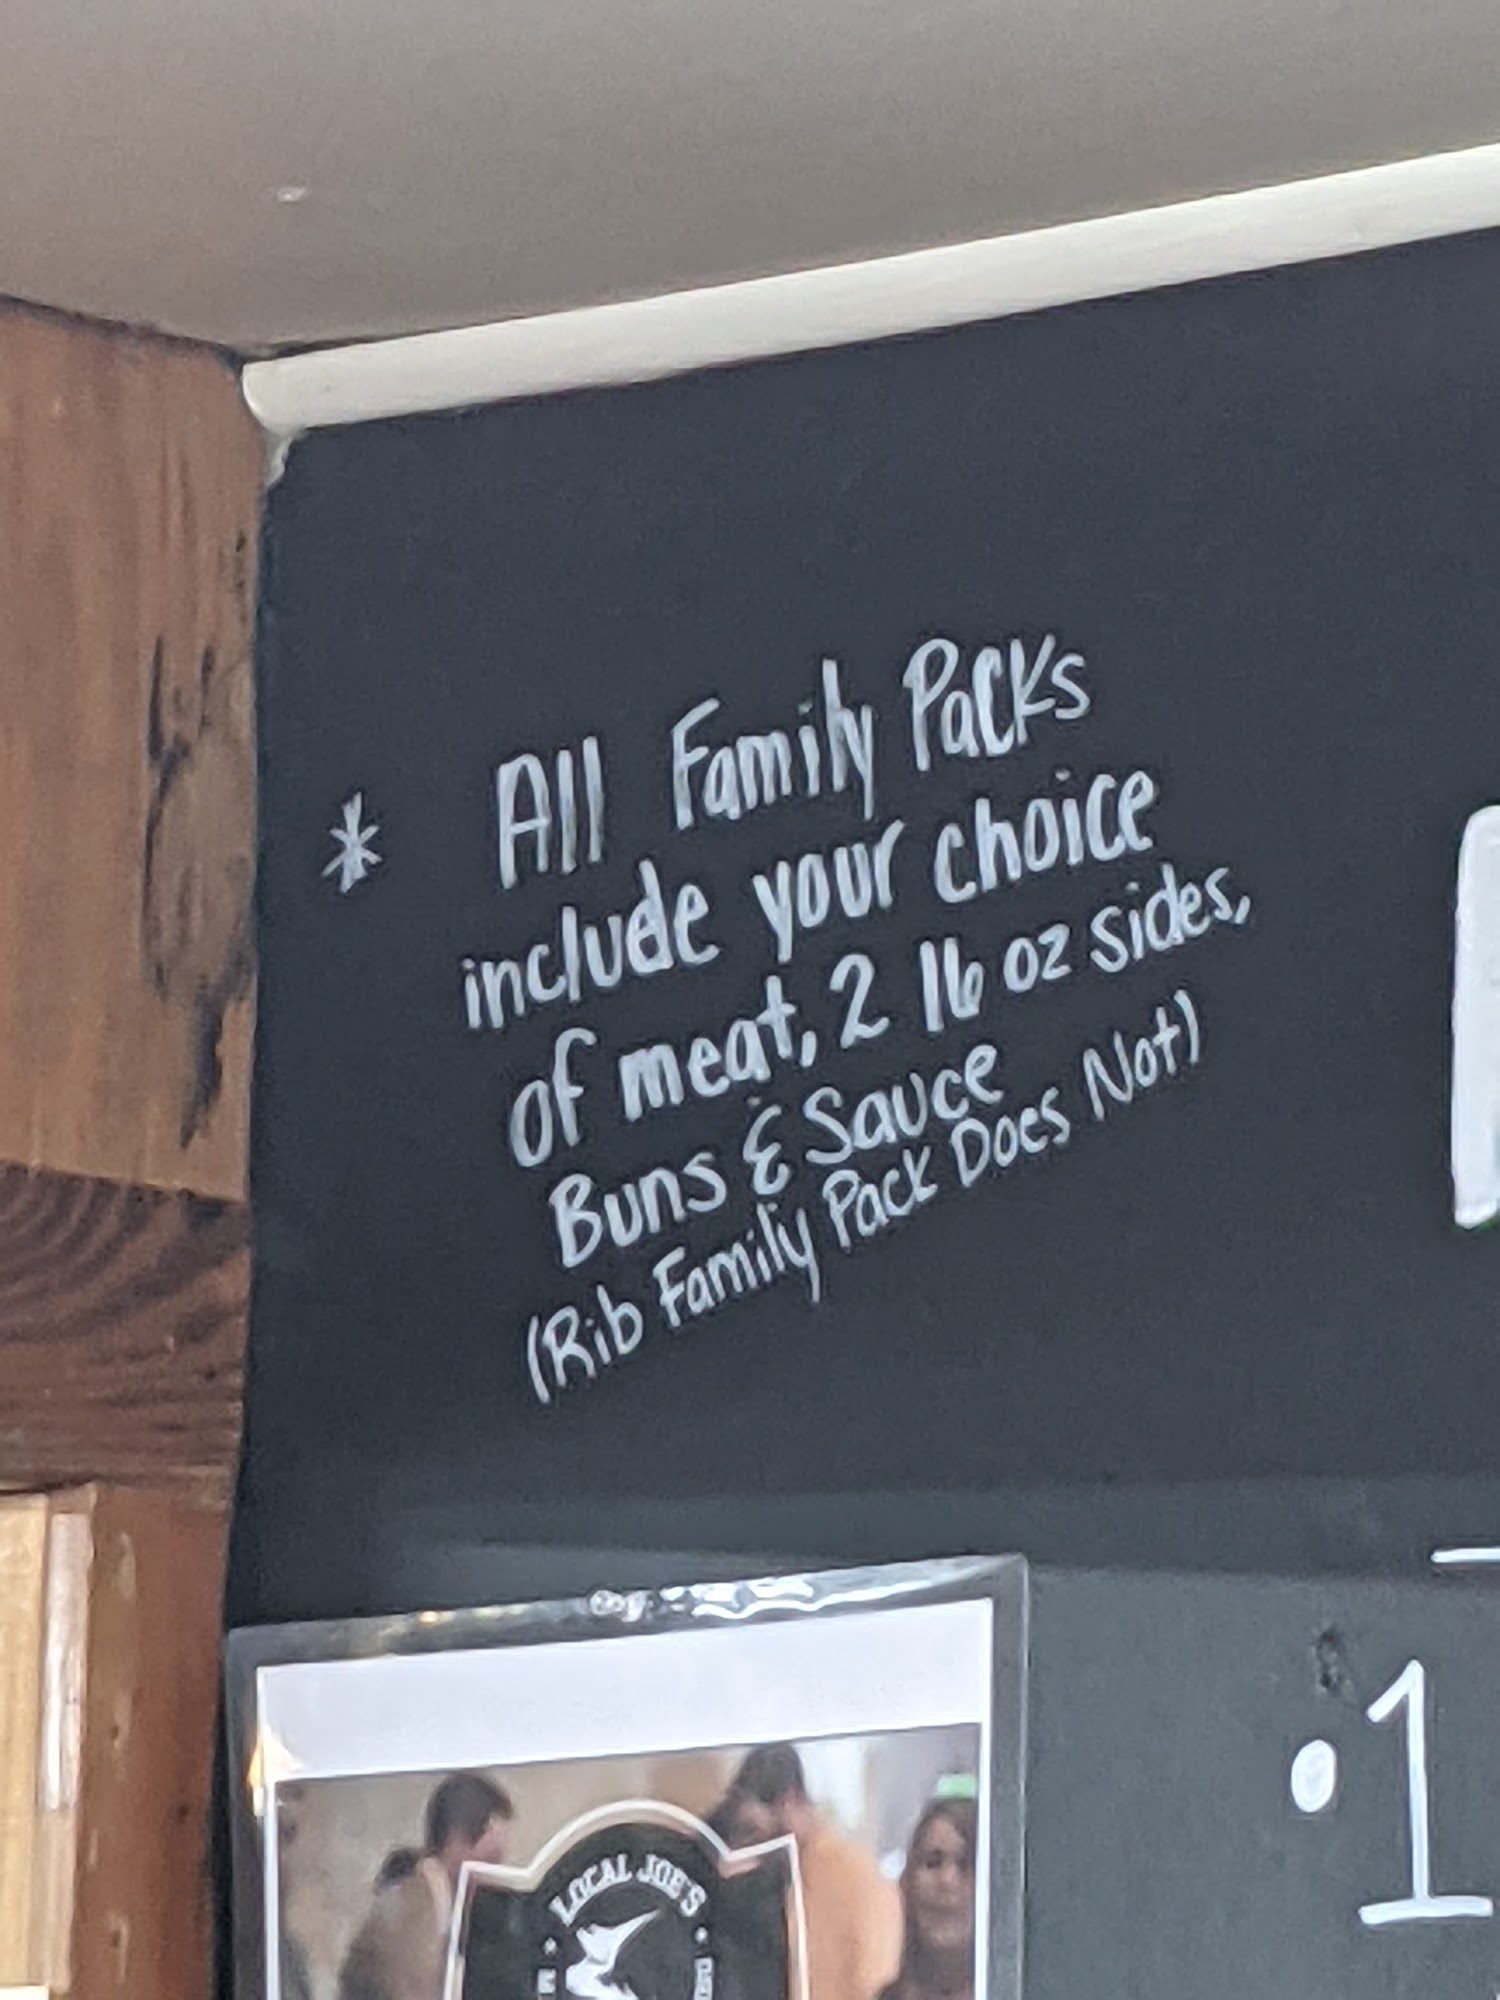 * All Family Packs
include your choice
of meat, 2 16 oz sides,
Buns & Sauce
(Rib Family Pack Does Not)
• 1
LOCAL JOE'S